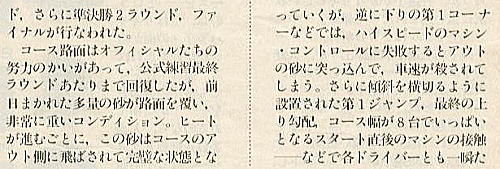 ド，さらに準決勝2ラウンド，ファ
イナルが行なわれた。
コース路面はオフィシャルたちの
努力のかいがあって，公式練習最終
ラウンドあたりまで回復したが，前
日まかれた多量の砂が路面を覆い，
非常に重いコンディション。ヒート
が進むごとに，この砂はコースのア
ウト側に飛ばされて完璧な状態とな
っていくが，逆に下りの第1コーナ
ーなどでは，ハイスピードのマシン
・コントロールに失敗するとアウト
の砂に突っ込んで，車速が殺されて
しまう。さらに傾斜を横切るように
設置された第1ジャンプ，最終の上
り勾配，コース幅が8台でいっぱい
となるスタート直後のマシンの接触
——などで各ドライバーとも一瞬た